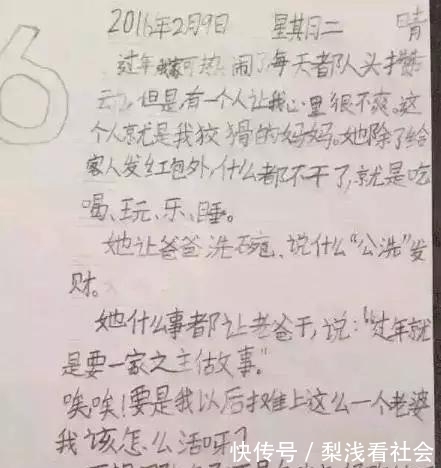 2016年2月9日 星期二 晴
过年我家可热闹了每天都人头攒
动，但是有一个人让我心里很不爽。这
个人就是我狡猾的妈妈。她除了给
客人发红包外，什么都不干了，就是吃
喝、玩、乐、睡。
她让爸爸洗碗、说什么“公洗”发
财。
她什么事都让老爸干，说：“过年就
是要一家之主做事。”
唉唉！要是我以后摊上这么一个老婆
我该怎么活呀？
快传号／梨浅看社会